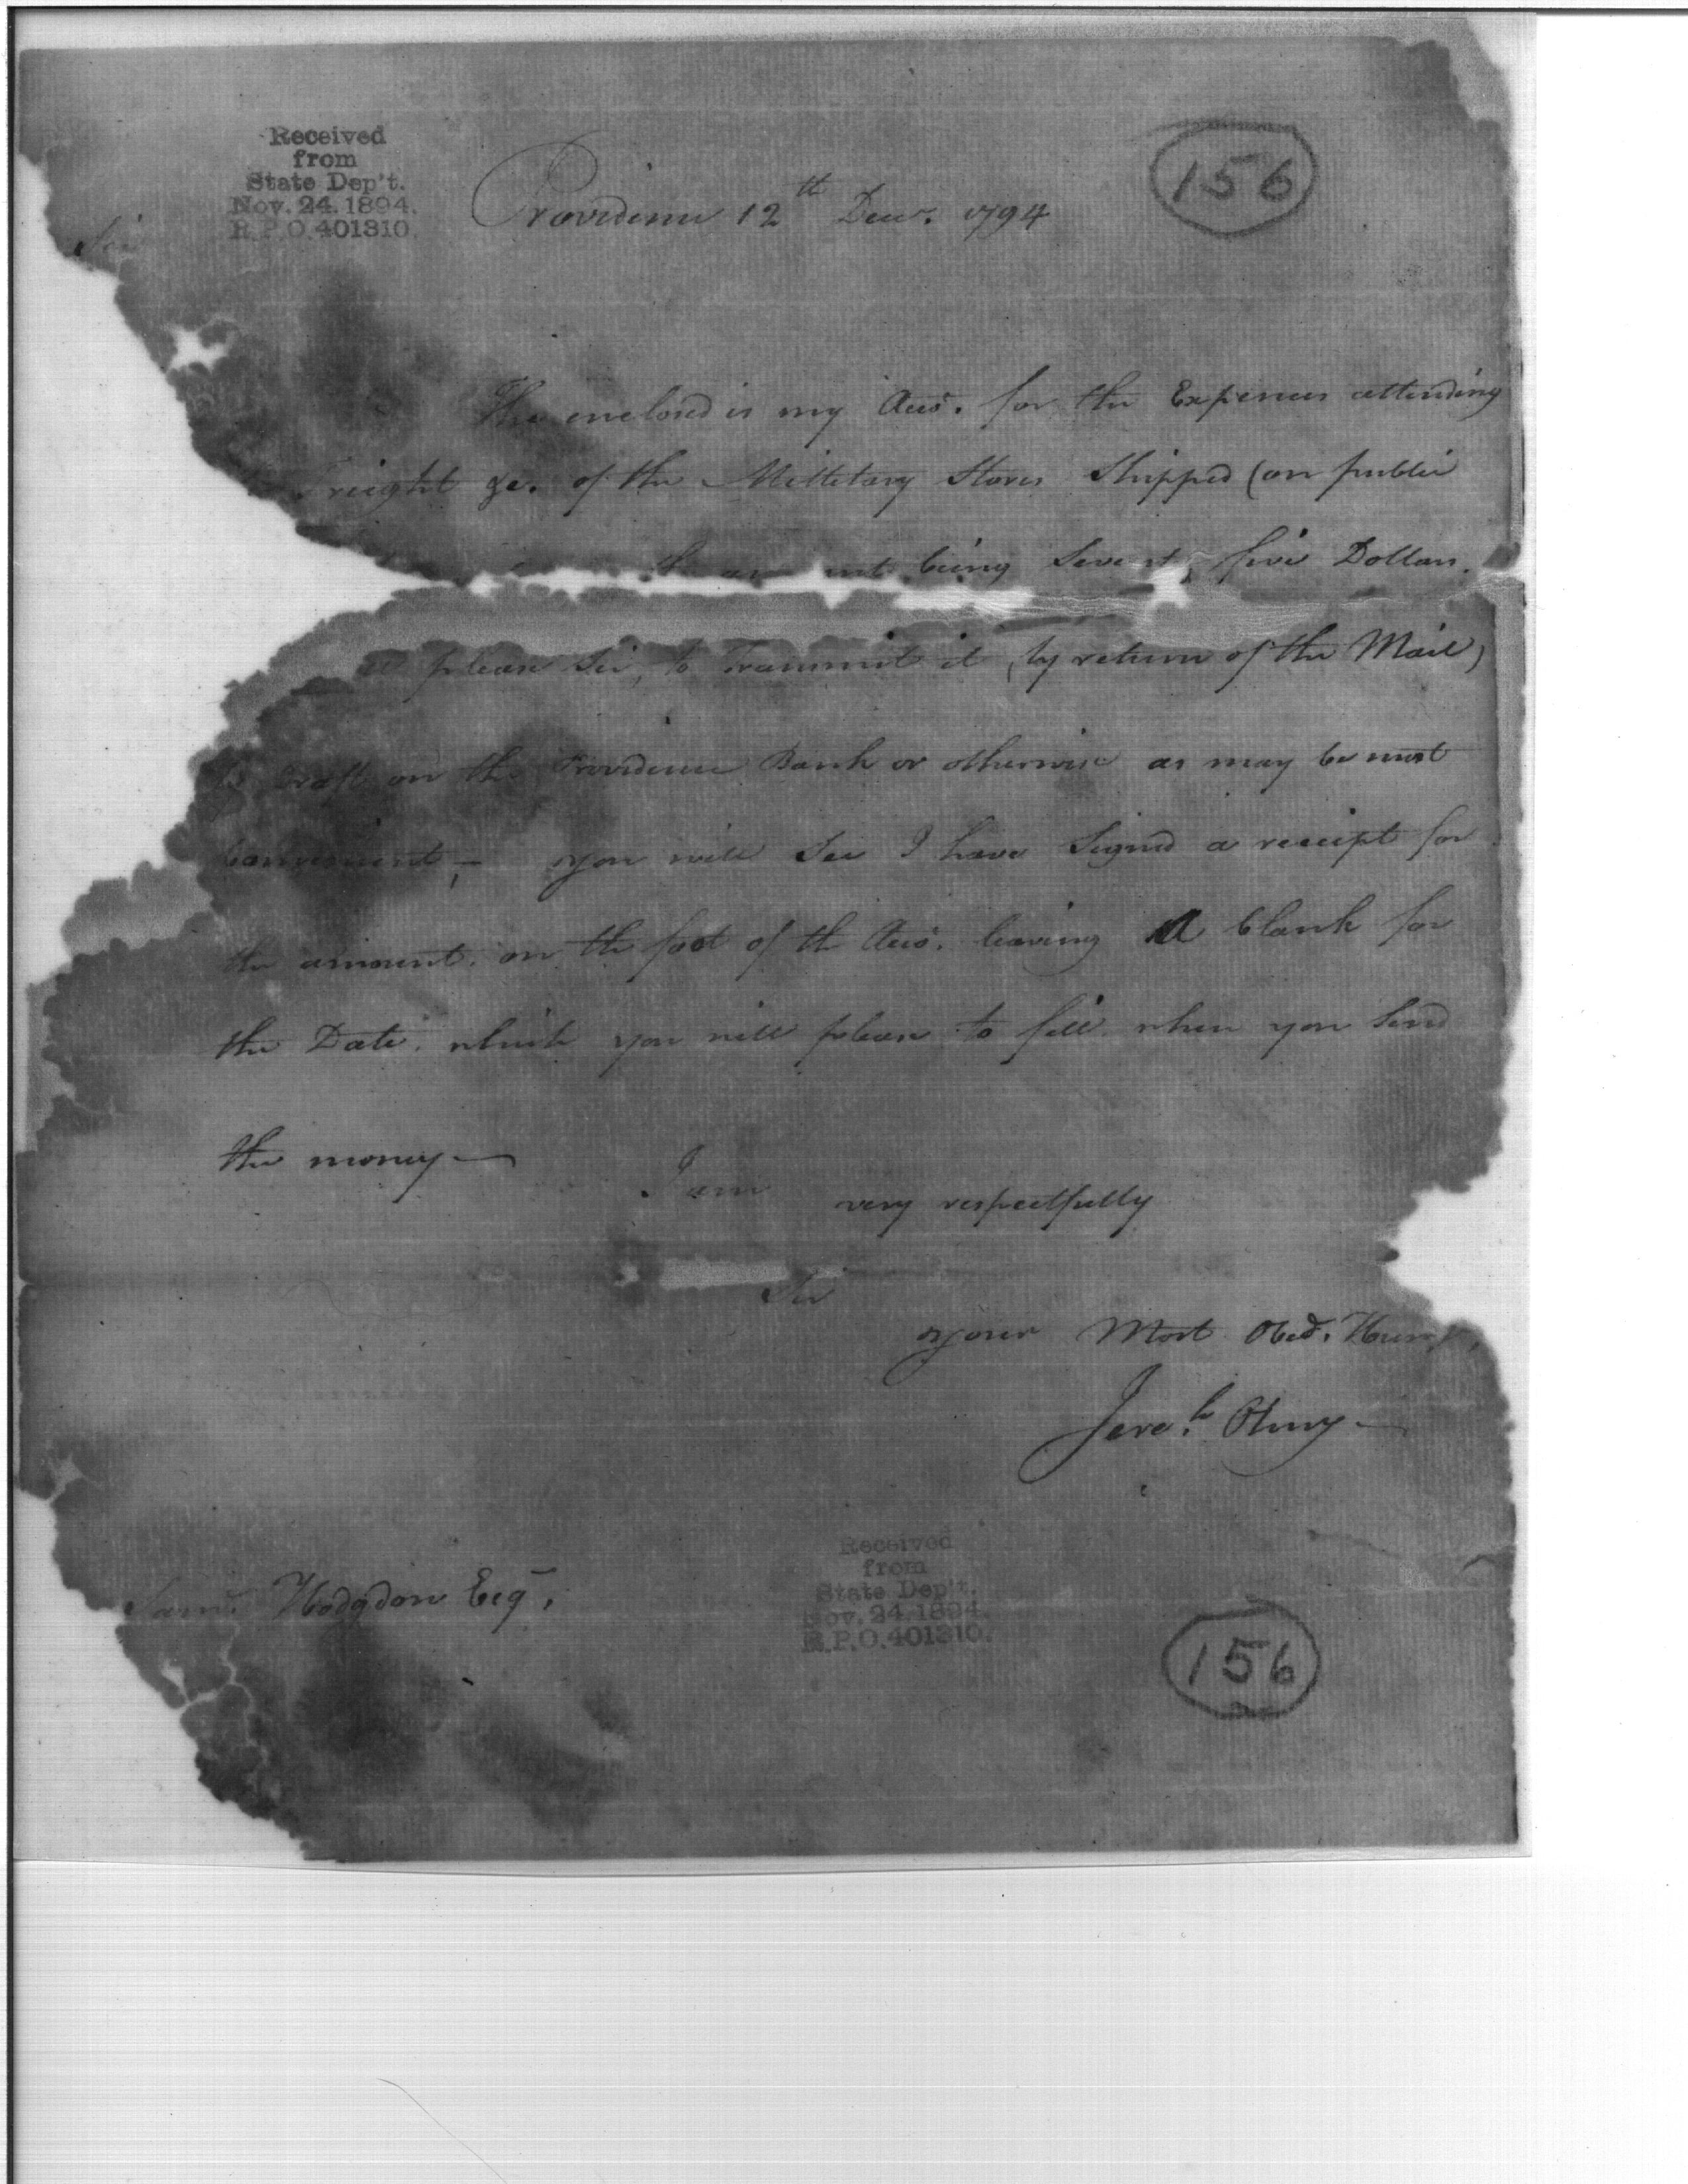 Received
from
State Dep't.
Nov. 24. 1894.
R.P.O. 401310.
156
Providence 12th Decr. 1794
Sir
The enclosed is my Acco. for the Expences attending
Freight &c. of the Millitary Stores Shipped (on public
the amount being Seventy five Dollars.
please Sir, to Transmit it (by return of the Mail)
Draft on the Providence Bank or otherwise as may be most
Convenient, — you will See I have Signed a receipt for
the amount. on the foot of the Acco. leaving a blank for
the Date. which you will please to fill when you Send
the money —
I am
very respectfully
Sir
your Most Obed.
Jereh. Olney —
Received
from
State Dep't.
Nov. 24. 1894.
R.P.O. 401310.
Saml. Hodgdon Esqr.
156